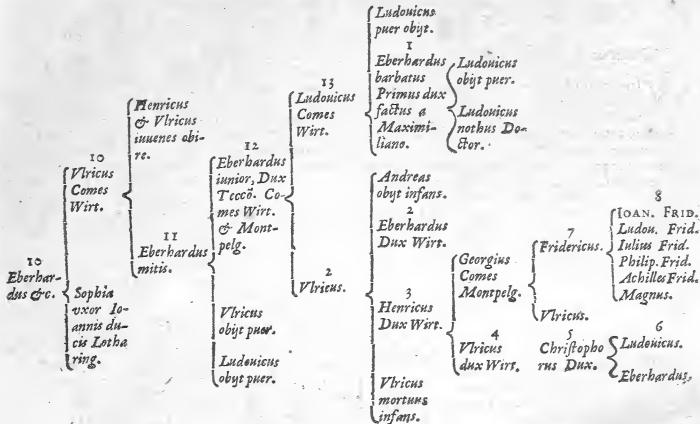 10
Eberhar-
dus &c.
10
Vlricus
Comes
Wirt.
Sophia
vxor Io-
annis du-
cis Lotha
ring.
Henricus
& Vlricus
iuuenes obi-
re.
11
Eberhardus
mitis.
12
Eberhardus
iunior, Dux
Teccõ. Co-
mes Wirt.
& Mont-
pelg.
Vlricus
obijt puer.
Ludouicus
obijt puer.
13
Ludouicus
Comes
Wirt.
2
Vlricus.
Ludouicus
puer obijt.
1
Eberhardus
barbatus
Primus dux
factus a
Maximi-
liano.
Ludouicus
obijt puer.
Ludouicus
nothus Do-
ctor.
Andreas
obyt infans.
2
Eberhardus
Dux Wirt.
3
Henricus
Dux Wirt.
Vlricus
mortuus
infans.
Georgius
Comes
Montpelg.
4
Vlricus
dux Wirt.
7
Fridericus.
Vlricus.
5
Christopho
rus Dux.
8
IOAN. FRID.
Ludou. Frid.
Iulius Frid.
Philip. Frid.
Achilles Frid.
Magnus.
6
Ludouicus.
Eberhardus.